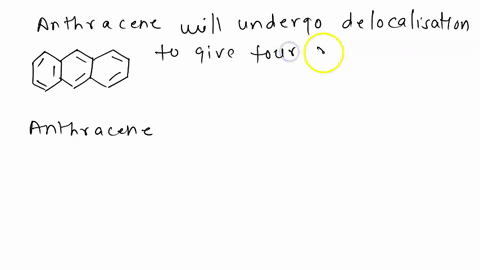 Anthracene will undergo delocalisation
to give four
Anthracene